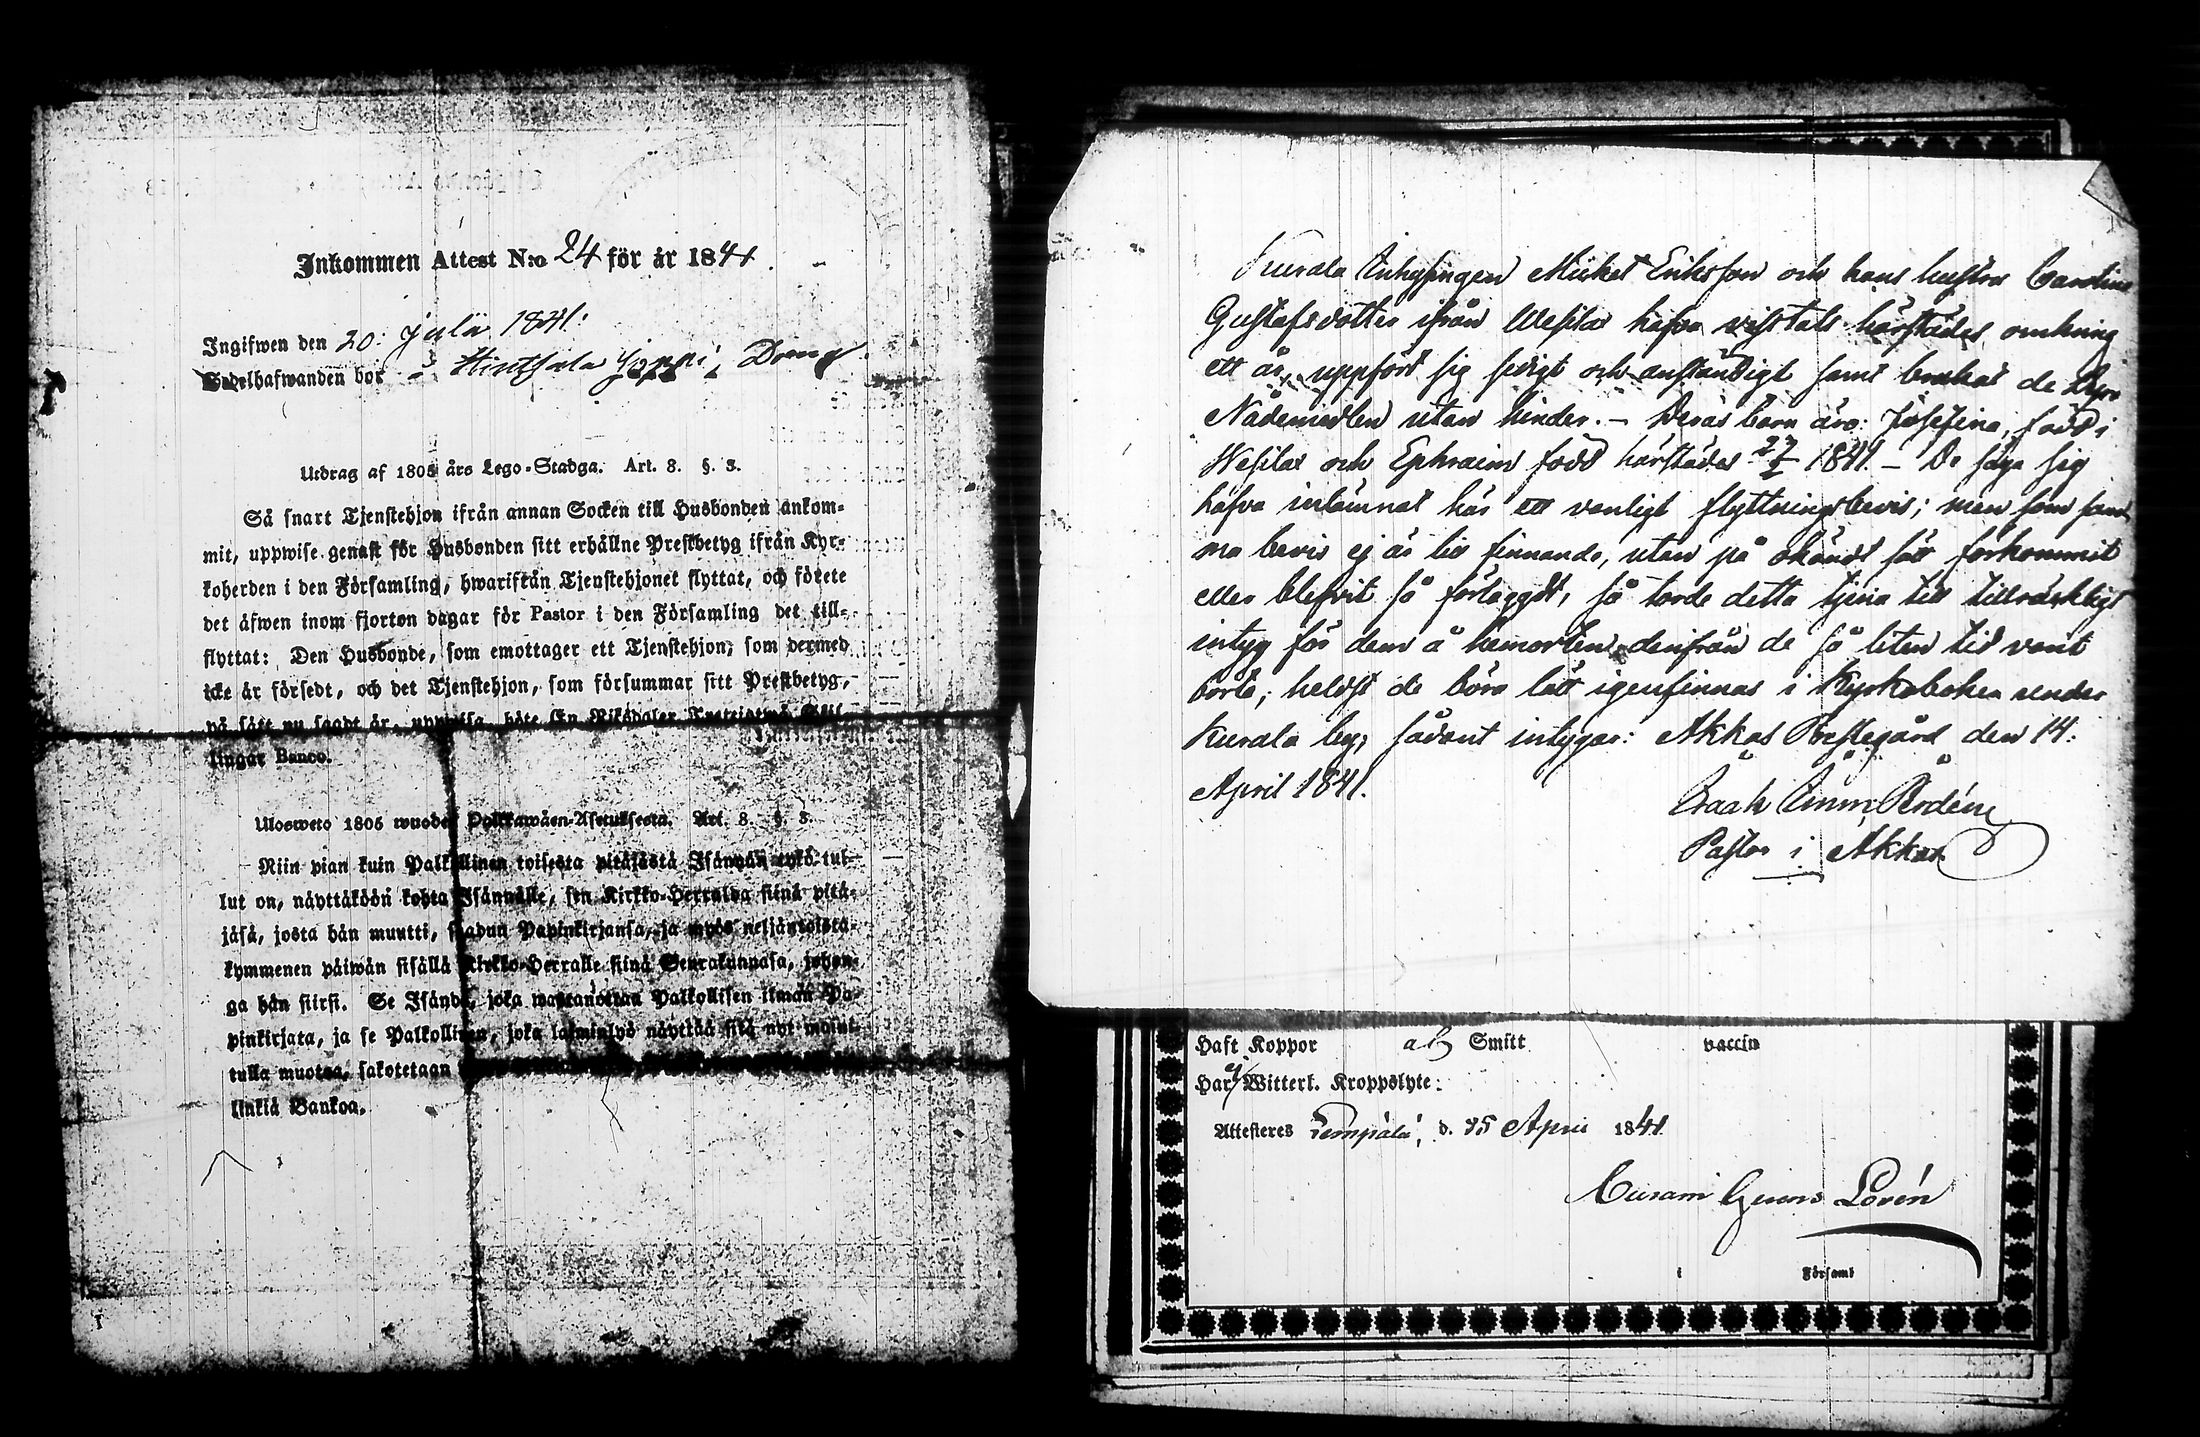 Inkommen Attest N:o 24 för år 1841.
Ingifwen den 20. Julii 1841.
Sedelhafwanden bor i Hinthala Joppi, Dreng
Utdrag af 1805 års Lego-Stadga. Art. 8. §. 3.
Så snart Tjenstehjon ifrån annan Socken till Husbonden ankom-
mit, uppwise genast för Husbonden sitt erhållne Prestbetyg ifrån Kyr-
koherden i den Församling, hwarifrån Tjenstehjonet flyttat, och förete
det äfwen inom fjorton dagar för Pastor i den Församling det till-
flyttat: Den Husbonde, som emottager ett Tjenstehjon, som dermed
icke är försedt, och det Tjenstehjon, som försummar sitt Prestbetyg,
på sätt nu sagdt är, uppwisa, böte En Riksdaler Tretiotwå Skil-
lingar Banco.
Ulosweto 1805 wuoden Palkkawäen-Asetuksesta. Art. 8. §. 3.
Niin pian kuin Palkollinen toisesta pitäjästä Isännän tykö tul-
lut on, näyttäköön kohta Isännälle, sen Kirkko-Herralda siinä pitä-
jäsä, josta hän muutti, saadun Papinkirjansa, ja myös neljäntoista-
kymmenen päiwän sisällä Kirkko-Herralle siinä Seurakunnasa, johon-
ga hän siirsi. Se Isändä, joka wastanottaa Palkollisen ilman Pa-
pinkirjata, ja se Palkollinen, joka laiminlyö näyttää sitä nyt mainit-
tulla muotoa, sakotetaan
linkiä Bankoa.
Kurala Inhysingen Mickel Eriksson och hans hustru Carolina
Gustafsdotter ifrån Wesilax hafva vistats härstädes omkring
ett år, uppfört sig sedigt och anständigt samt brukat de dyra
Nådemedlen utan hinder. – Deras barn äro: Josefina, född i
Wesilax och Ephraim född härstädes 27/1 1841. – De säga sig
hafva inlämnat här ett vanligt flyttningsbevis; men som sam-
ma bevis ej är till finnande, utan på okändt sätt förkommit
eller blefvit så förlaggdt, så torde detta tjena till tillräckligt
intyg för dem å hemorten, derifrån de så liten tid varit
borta; heldst de böra lätt igenfinnas i Kyrkoboken under
Kurala by; sådant intygar: Akkas Prestegård den 14.
April 1841.
Isaak Imm. Rodén
Pastor i Akkas
Haft Koppor af Smitt vaccin
Har ej Witterl. Kroppslyte:
Attesteres Lempälä, d. 25 April 1841
Curam Gerens Lorén
i Församl